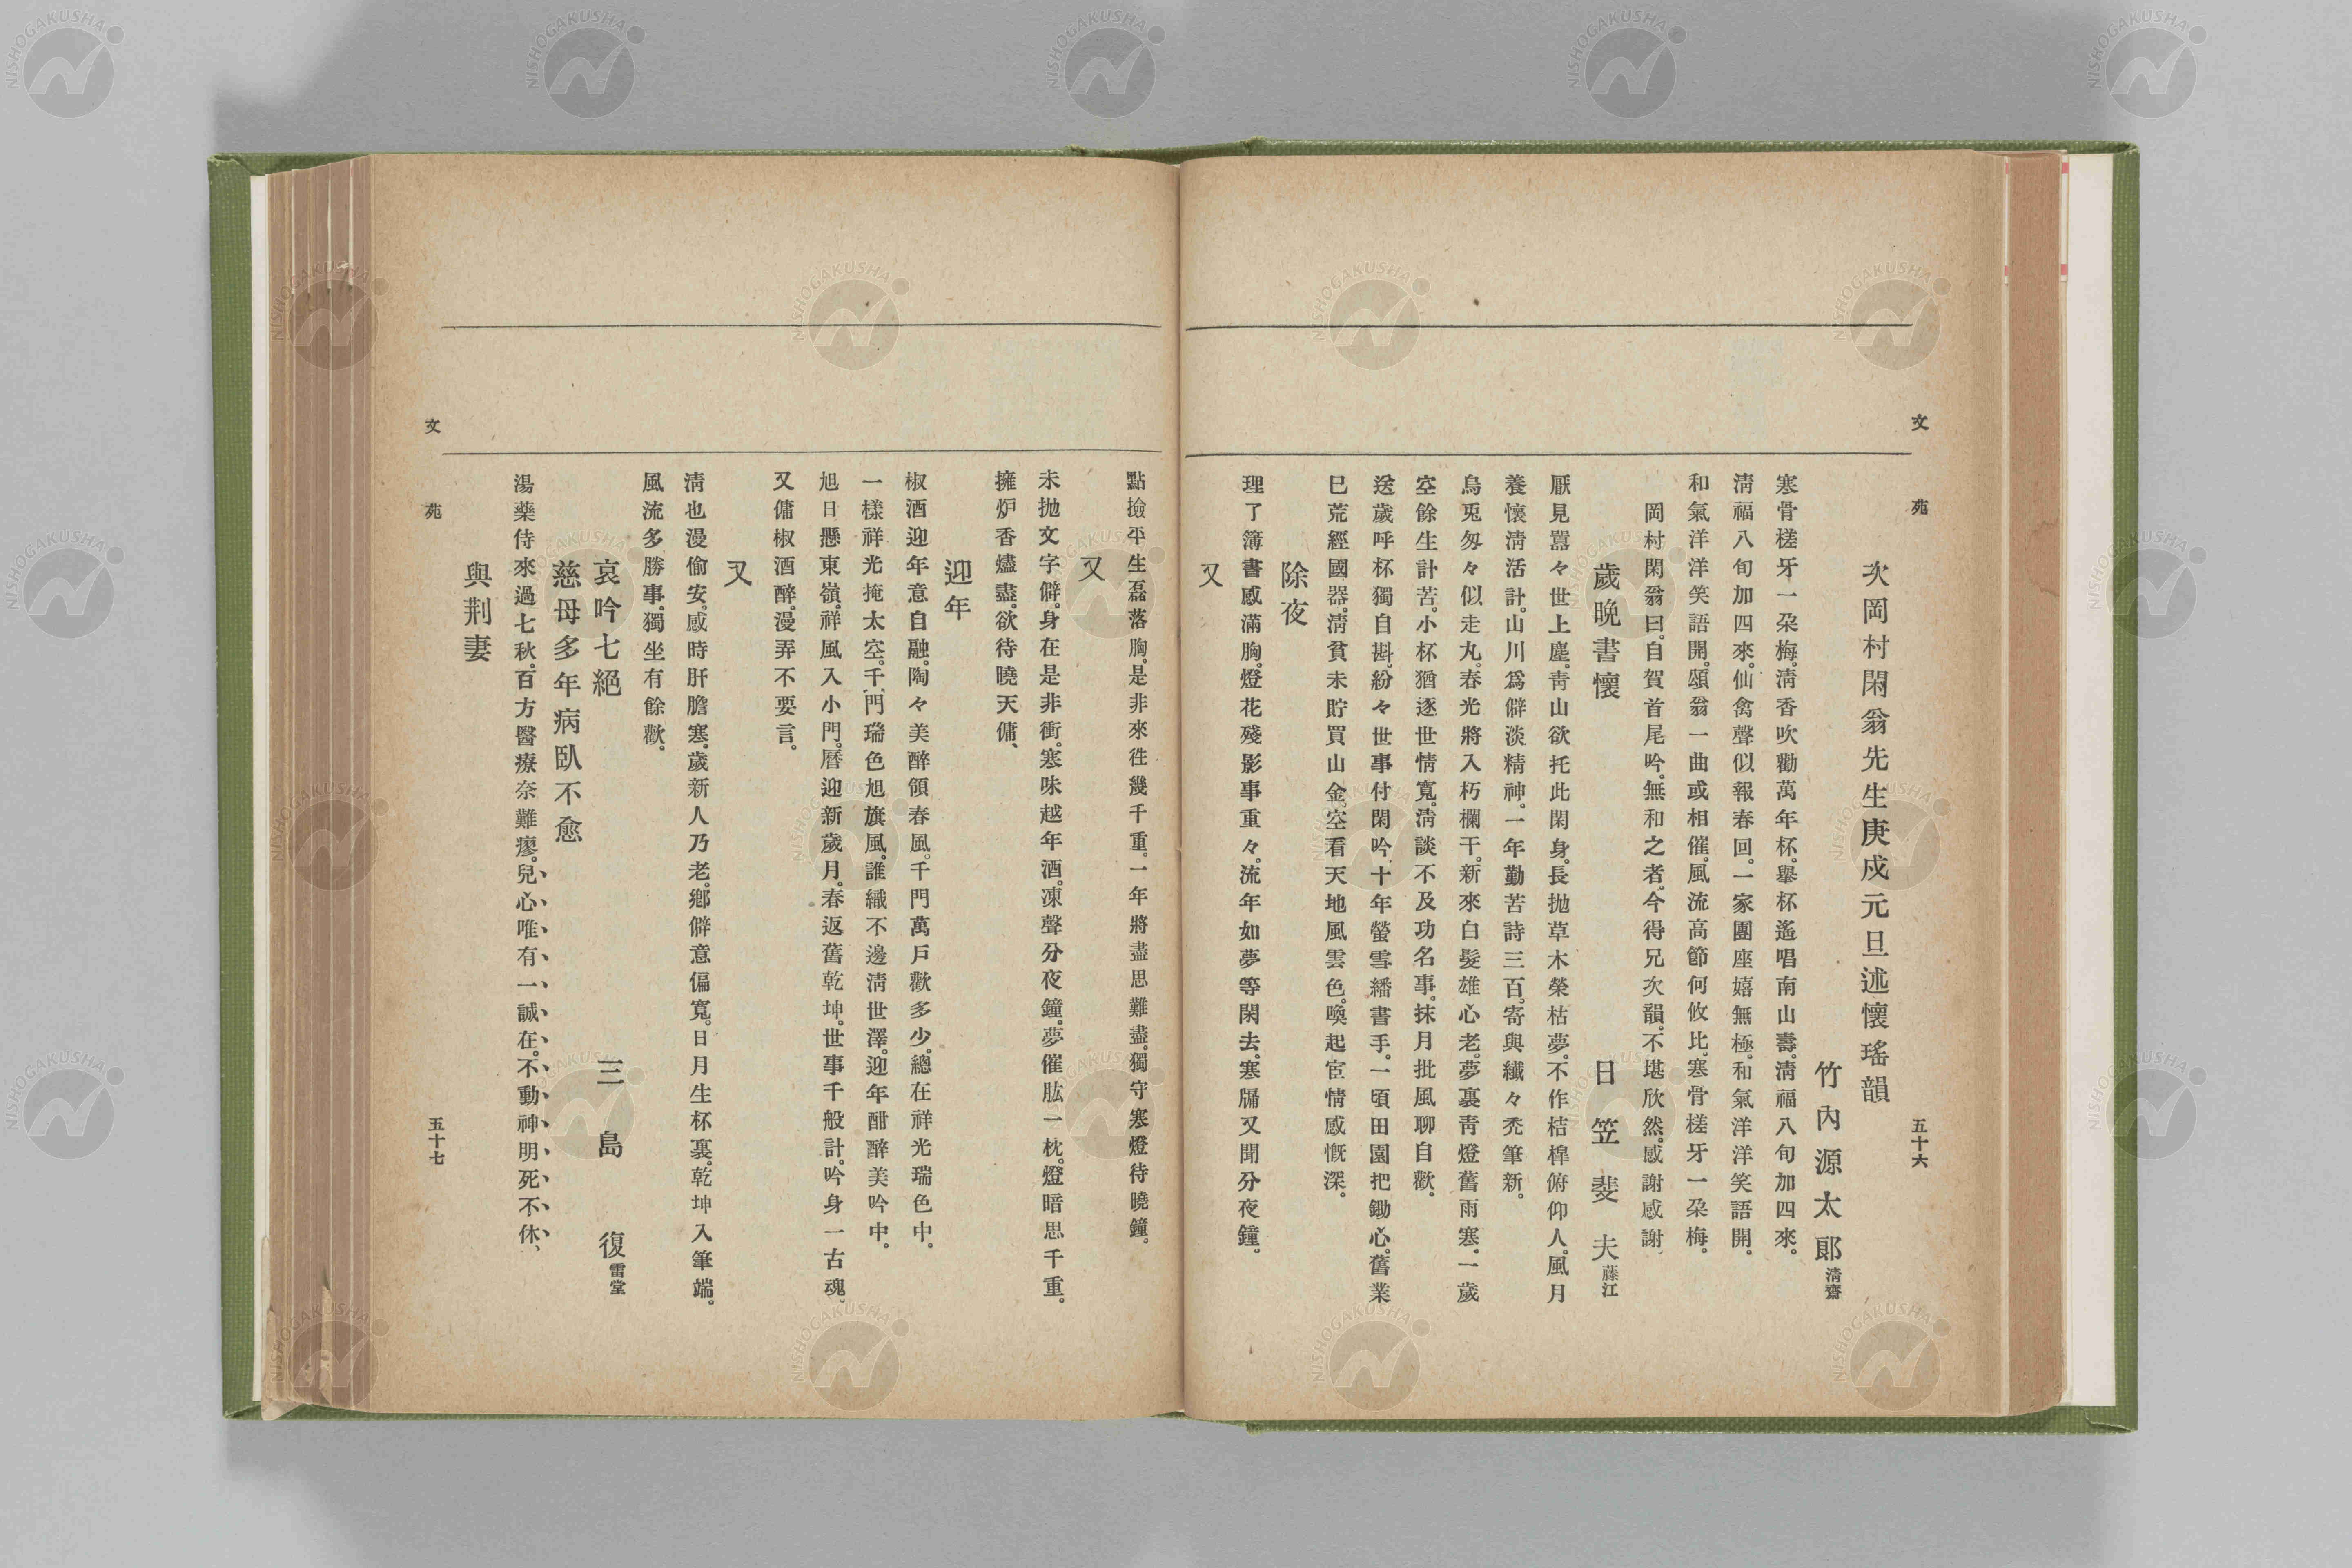 文苑
五十六
次岡村閑翁先生庚戍元旦述懷瑤韻
竹內源太郞淸齋
寒骨槎牙一朶梅。淸香吹勸萬年杯。擧杯遙唱南山壽。淸福八旬加四來。
淸福八旬加四來。仙禽聲似報春回。一家團座嬉無極。和氣洋洋笑語開。
和氣洋洋笑語開。頤翁一曲或相催。風流高節何攸比。寒骨槎牙一朶梅。
岡村閑翁曰。自賀首尾吟。無和之者。今得兄次韻。不堪欣然。感謝感謝、
歲晩書懷
日笠斐夫藤江
厭見囂々世上塵。靑山欲托此閑身。長抛草木榮枯夢。不作桔槹俯仰人。風月
養懷淸活計。山川爲僻淡精神。一年勤苦詩三百。寄與纖々禿筆新。
烏兎匆々似走丸。春光將入朽欄干。新來白髮雄心老。夢裏靑燈舊雨寒。一歲
空餘生計苦。小杯猶逐世情寬。淸談不及功名事。抹月批風聊自歡。
送歲呼杯獨自斟。紛々世事付閑吟、十年螢雪繙書手。一頃田園把鋤心。舊業
已荒經國器。淸貧未貯買山金。空看天地風雲色。喚起宦情感慨深。
除夜
理了簿書感滿胸。燈花殘影事重々。流年如夢等閑去。寒牖又聞分夜鐘。
又
點撿平生磊落胸。是非來徃幾千重。一年將盡思難盡。獨守寒燈待曉鐘。
又
未抛文字僻。身在是非衝。寒味越年酒。凍聲分夜鐘。夢催肱一枕。燈暗思千重。
擁炉香燼盡。欲待曉天傭、
迎年
椒酒迎年意自融。陶々美醉領春風。千門萬戶歡多少。總在祥光瑞色中。
一樣祥光掩太空。千門瑞色旭旗風。誰織不邊淸世澤。迎年酣醉美吟中。
旭日懸東嶺。祥風入小門。曆迎新歲月。春返舊乾坤。世事千般計。吟身一古魂。
又傭椒酒醉。漫弄不要言。
又
淸也漫偷安。感時肝膽寒。歲新人乃老。鄕僻意偏寬。日月生杯裏。乾坤入筆端。
風流多勝事。獨坐有餘歡。
哀吟七絕
三島復雷堂
慈母多年病臥不愈
湯藥侍來過七秋。百方醫療奈難瘳。兒心唯有一誠在。不動神明死不休、
與荆妻
文苑
五十七